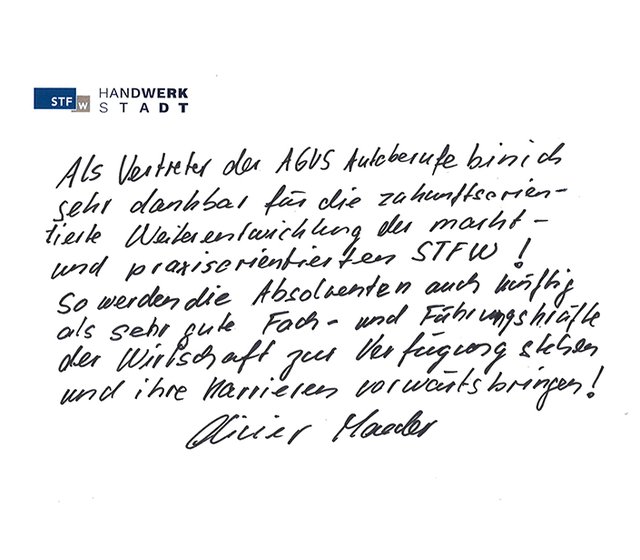 STFW HANDWERK
STADT
Als Vertreter der AGVS Autoberufe bin ich
sehr dankbar für die zukunftsorien-
tierte Weiterentwicklung der markt-
und praxisorientierten STFW!
So werden die Absolventen auch künftig
als sehr gute Fach- und Führungskräfte
der Wirtschaft zur Verfügung stehen
und ihre Karrieren vorwärtsbringen!
Olivier Maeder